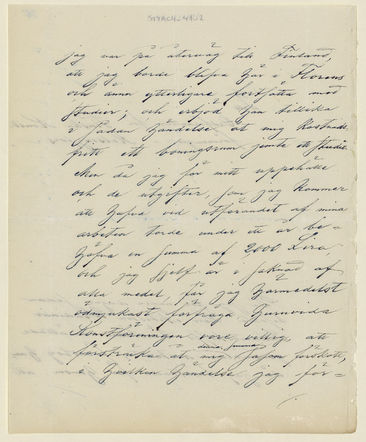 jag var på återväg till Finland,
att jag borde blifva här i Florens
och ännu ytterligare fortsätta med
studier; och erbjöd han tillika
i sådan händelse at mig kostnads
fritt ett boningsrum jemte en studio.
Men då jag för mitt uppehälle
och de utgifter, som jag kommer
att hafva vid utförandet af mina
arbeten torde under ett år be=
höfva en summa af 2,000 Lira,
och jag sjelf är i saknad af
alla medel, får jag härmedelst
ödmjukast förfråga huruvida
Konstföreningen vore villig, att
försträcka åt mig denna summa såsom förskott,
i hvilken händelse jag för=